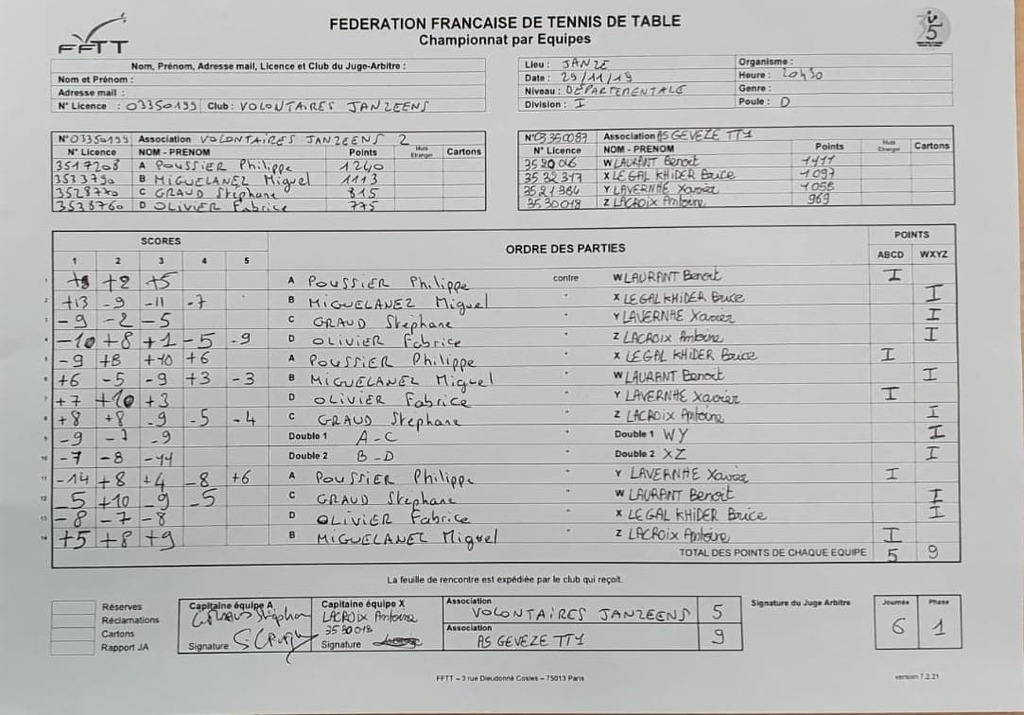 FFTT
FEDERATION FRANCAISE DE TENNIS DE TABLE
Championnat par Equipes
Nom, Prénom, Adresse mail, Licence et Club du Juge-Arbitre :
Nom et Prénom :
Adresse mail :
N° Licence : 03350199 Club : VOLONTAIRES JANZEENS
Lieu : JANZE Organisme :
Date : 29/11/19 Heure : 20h30
Niveau : DEPARTEMENTALE Genre :
Division : I Poule : D
N° 03350199 Association VOLONTAIRES JANZEENS 2
N° Licence NOM - PRENOM Points Muté Etranger Cartons
3517208 A POUSSIER Philippe 1240
3533790 B MIGUELANEZ Miguel 1113
3528770 C GRAUD Stéphane 815
3535760 D OLIVIER Fabrice 775
N° 03350087 Association AS GEVEZE TT1
N° Licence NOM - PRENOM Points Muté Etranger Cartons
W LAURANT Benoit 1411
3532317 X LEGAL KHIDER Brice 1097
3521384 Y LAVERNHE Xavier 1058
3530018 Z LACROIX Antoine 969
SCORES ORDRE DES PARTIES POINTS
1 2 3 4 5 ABCD WXYZ
1 +2 +5 A POUSSIER Philippe contre W LAURANT Benoit I
2 +13 -9 -11 -7 B MIGUELANEZ Miguel " X LEGAL KHIDER Brice I
3 -9 -2 -5 C GRAUD Stéphane " Y LAVERNHE Xavier I
4 -10 +8 +1 -5 -9 D OLIVIER Fabrice " Z LACROIX Antoine I
5 -9 +8 +10 +6 A POUSSIER Philippe " X LEGAL KHIDER Brice I
6 +6 -5 -9 +3 -3 B MIGUELANEZ Miguel " W LAURANT Benoit I
7 +7 +10 +3 D OLIVIER Fabrice " Y LAVERNHE Xavier I
8 +8 +8 -9 -5 -4 C GRAUD Stéphane " Z LACROIX Antoine I
9 -9 -7 -9 Double 1 A-C " Double 1 WY I
10 -7 -8 -11 Double 2 B-D " Double 2 XZ I
11 -14 +8 +4 -8 +6 A POUSSIER Philippe " Y LAVERNHE Xavier I
12 -5 +10 -9 -5 C GRAUD Stéphane " W LAURANT Benoit I
13 -8 -7 -8 D OLIVIER Fabrice " X LEGAL KHIDER Brice I
14 +5 +8 +9 B MIGUELANEZ Miguel " Z LACROIX Antoine I
TOTAL DES POINTS DE CHAQUE EQUIPE 5 9
La feuille de rencontre est expédiée par le club qui reçoit.
Réserves
Réclamations
Cartons
Rapport JA
Capitaine équipe A
GRAUD Stéphane
Signature
Capitaine équipe X
LACROIX Antoine
3530018
Signature
Association VOLONTAIRES JANZEENS 5
Association AS GEVEZE TT1 9
Signature du Juge Arbitre
Journée Phase
6 1
FFTT – 3 rue Dieudonné Costes – 75013 Paris
version 7.2.21